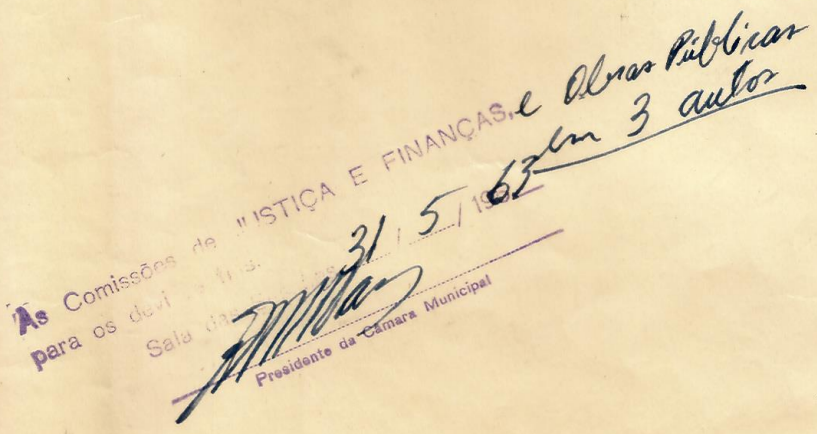 As Comissões de JUSTIÇA E FINANÇAS, e Obras Públicas
em 3 autos
para os devi fins.
Sala das 31 / 5 / 1963
Presidente da Câmara Municipal